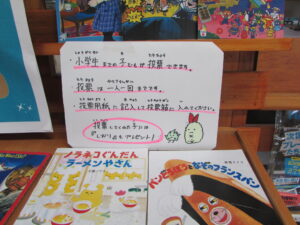 ・小学生までの子どもが投票できます。
・投票は一人一回までです。
・投票用紙に記入して投票箱に入れてください。
投票してくれた子には
"しおり"をプレゼント!
ノラネコぐんだん
ラーメンやさん
パンどろぼうとなぞのフランスパン